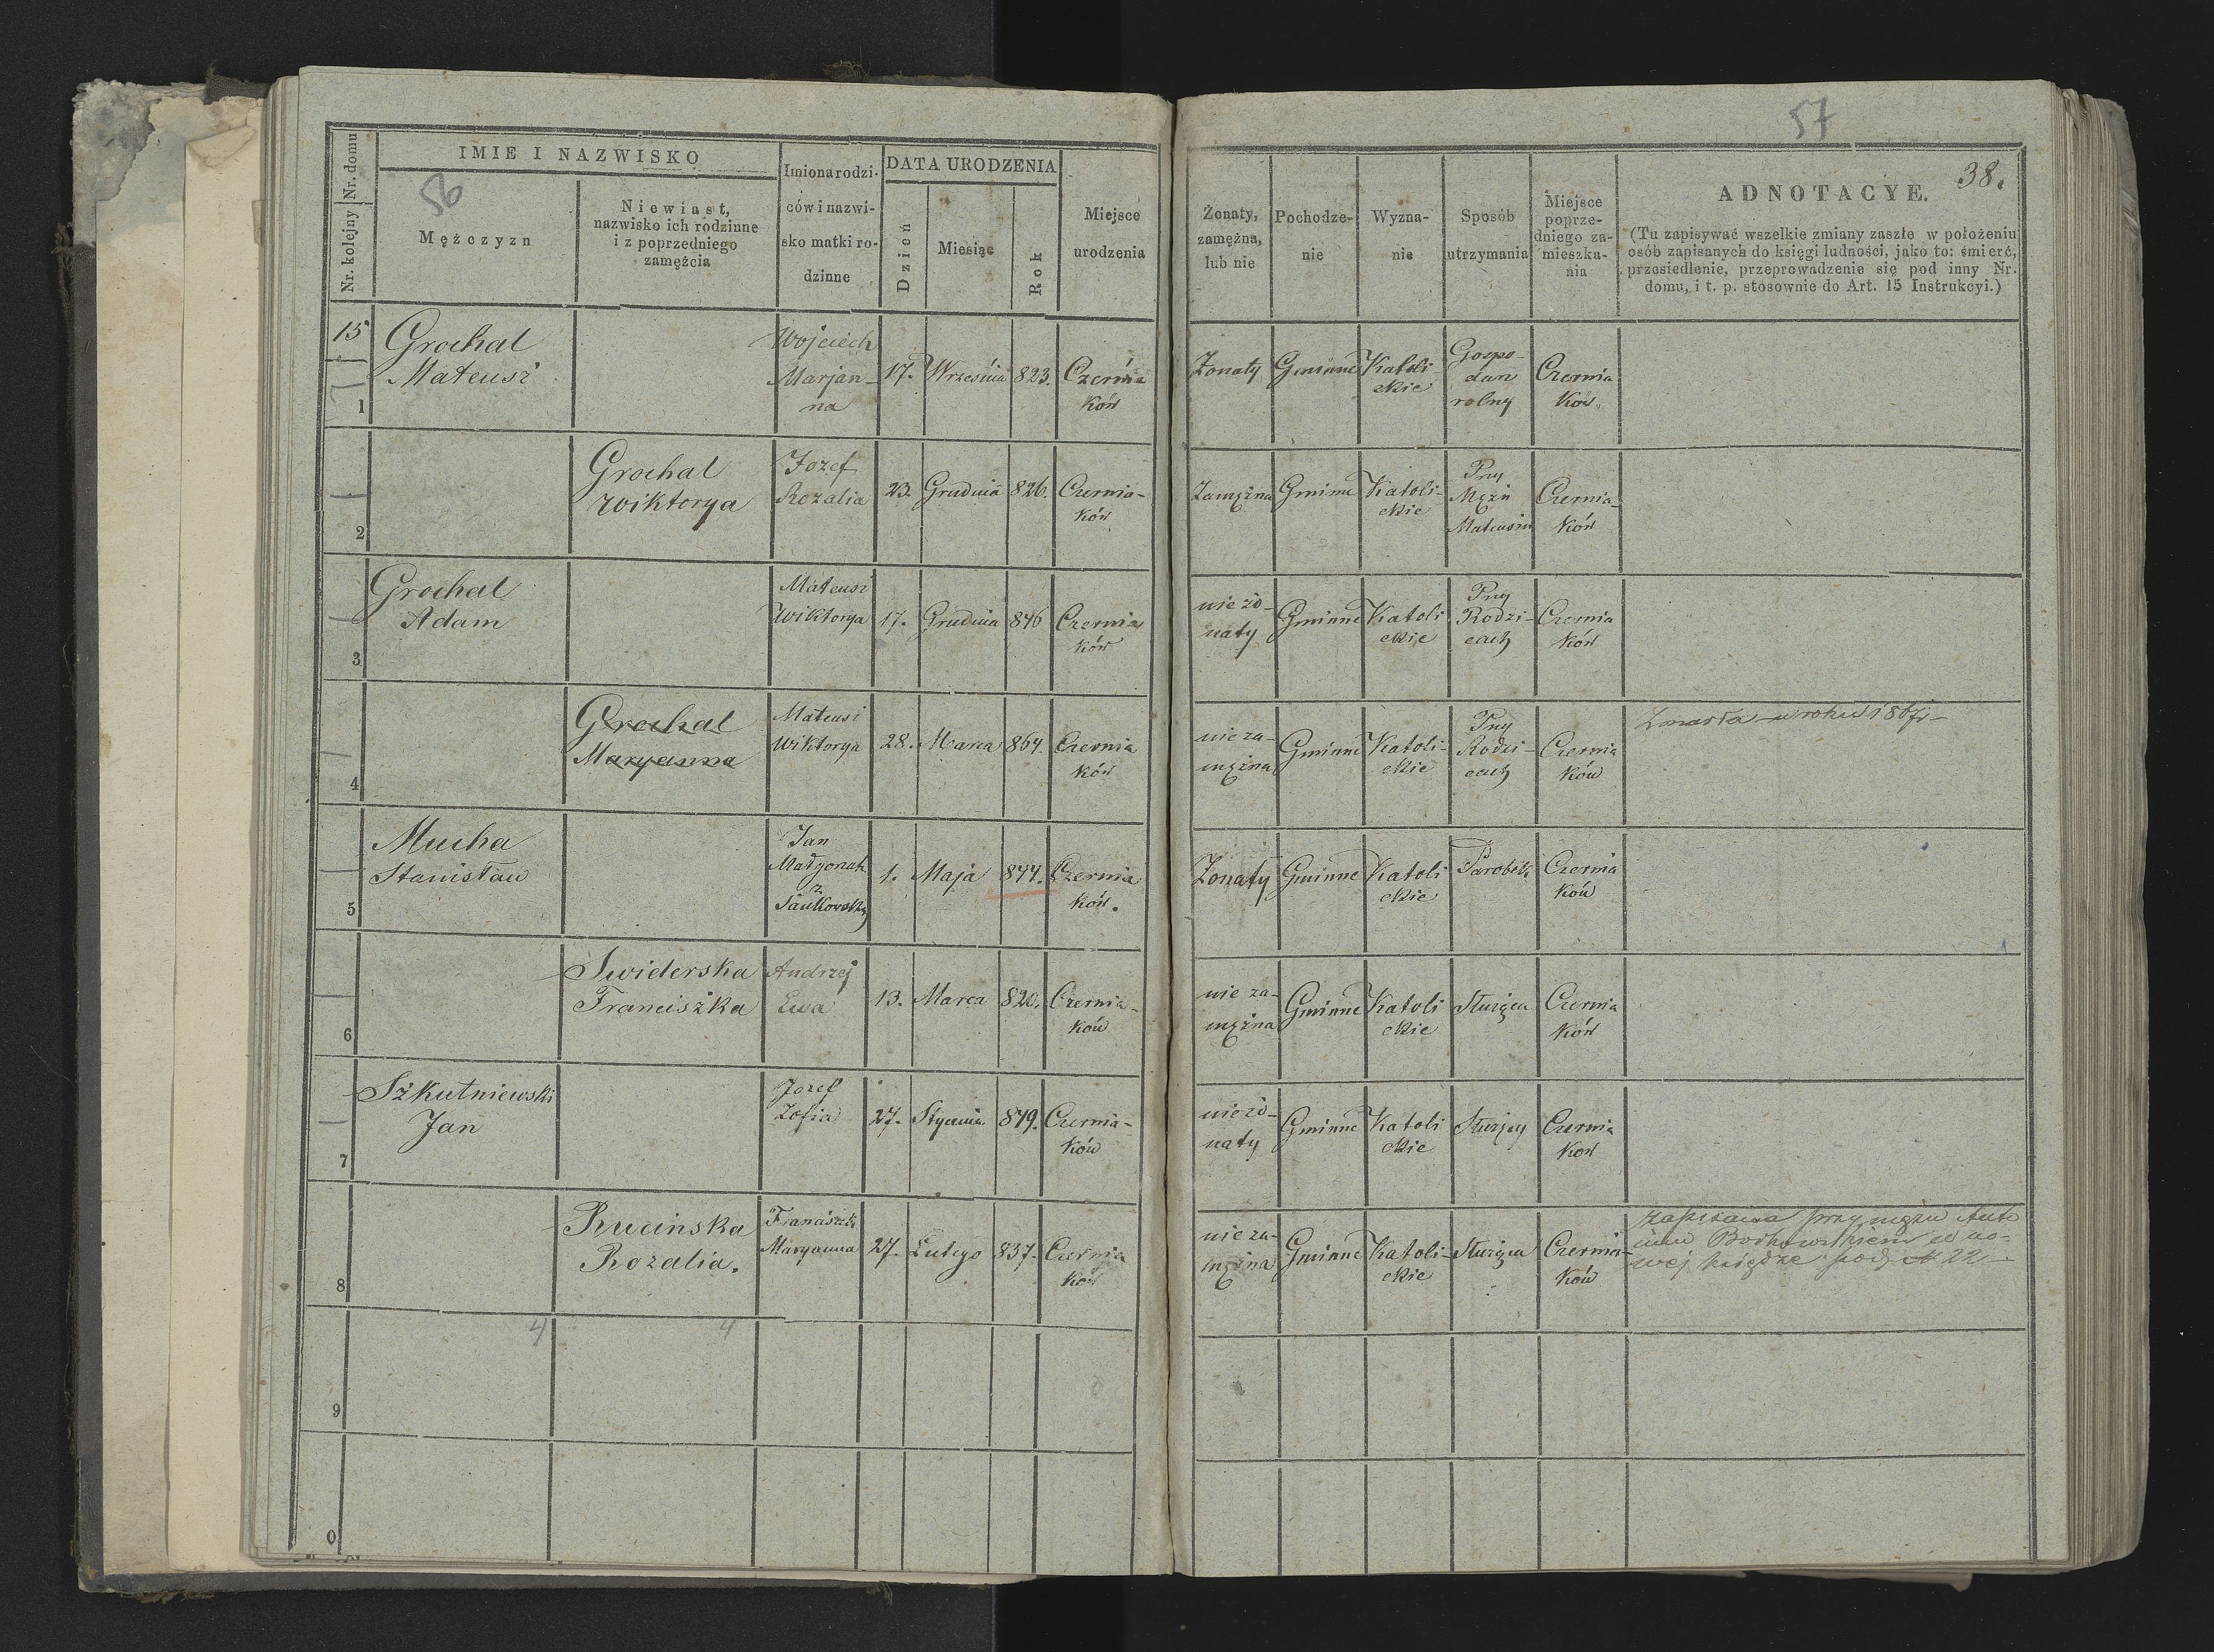 57
38.
56
Nr. kolejny Nr. domu
IMIE I NAZWISKO
Mężczyzn
Niewiast,
nazwisko ich rodzinne
i z poprzedniego
zamężcia
Imiona rodzi-
ców i nazwi-
sko matki ro-
dzinne
DATA URODZENIA
Dzień
Miesiąc
Rok
Miejsce
urodzenia
Żonaty,
zamężna,
lub nie
Pochodze-
nie
Wyzna-
nie
Sposób
utrzymania
Miejsce
poprze-
dniego za-
mieszka-
nia
ADNOTACYE.
(Tu zapisywać wszelkie zmiany zaszłe w położeniu
osób zapisanych do księgi ludności, jako to: śmierć,
przesiedlenie, przeprowadzenie się pod inny Nr.
domu, i t. p. stosownie do Art. 15 Instrukcyi.)
15
1
Grochal
Mateusz
Wojciech
Marjan-
na
17.
Września
823.
Czernia
ków
Żonaty
Gminne
Katoli
ckie
Gospo-
darz
rolny
Czernia
ków.
2
Grochal
Wiktorya
Jozef
Rozalia
23.
Grudnia
826.
Czernia-
ków
Zamężna
Gminne
Katoli-
ckie
Przy
Mężu
Mateuszu
Czernia-
ków
3
Grochal
Adam
Mateusz
Wiktorya
17.
Grudnia
846
Czernia
ków
nie żo-
naty
Gminne
Katoli
ckie
Przy
Rodzi-
cach
Czernia
ków
4
Grochal
Maryanna
Mateusz
Wiktorya
28.
Marca
864.
Czernia
ków
nie za-
mężna
Gminne
Katoli-
ckie
Przy
Rodzi-
cach
Czernia
ków
Zmarła w roku 1867
5
Mucha
Stanisław
Jan
Małgorzata
z
1.
Maja
844.
Czernia
ków.
Żonaty
Gminne
Katoli
ckie
Parobek
Czernia
ków
6
Swiderska
Franciszka
Andrzej
Ewa
13.
Marca
820.
Czernia-
ków
nie za-
mężna
Gminne
Katoli
ckie
Służąca
Czernia
ków
7
Szkutniewski
Jan
Jozef
Zofia
27.
Stycznia
849.
Czernia-
ków
nie żo-
naty
Gminne
Katoli
ckie
Służący
Czernia
ków
8
Rucinska
Rozalia.
Franciszek
Maryanna
27.
Lutego
837.
Czernia
ków
nie za-
mężna
Gminne
Katoli-
ckie
Służąca
Czernia-
ków
zapisana przy mężu Anto
nim Borkowskiem w no-
wej księdze pod № 22
4
4
9
0